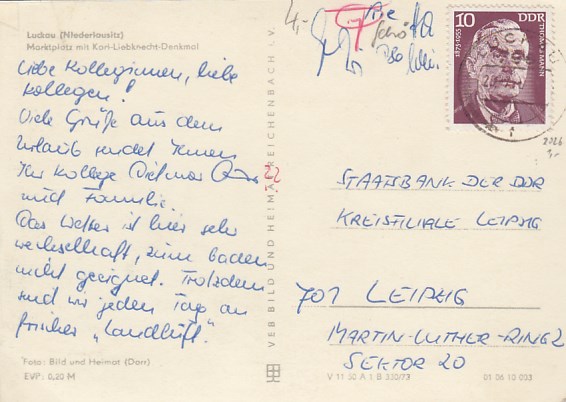 Luckau (Niederlausitz)
Marktplatz mit Karl-Liebknecht-Denkmal
Liebe Kolleginnen, liebe
Kollegen!
Viele Grüße aus dem
Urlaub sendet Ihnen
Ihr Kollege Dietmar
und Familie.
Das Wetter ist hier sehr
wechselhaft, zum baden
nicht geeignet. Trotzdem
sind wir jeden Tag an
frischer „Landluft".
Foto: Bild und Heimat (Darr)
EVP: 0,20 M
VEB BILD UND HEIMAT REICHENBACH I. V.
22
4,-
10
DDR
THOMAS MANN
1875-1955
STAATSBANK DER DDR
KREISFILIALE LEIPZIG
701 LEIPZIG
MARTIN-LUTHER-RING 2
SEKTOR 20
V 11 50 A 1 B 330/73
01 06 10 093